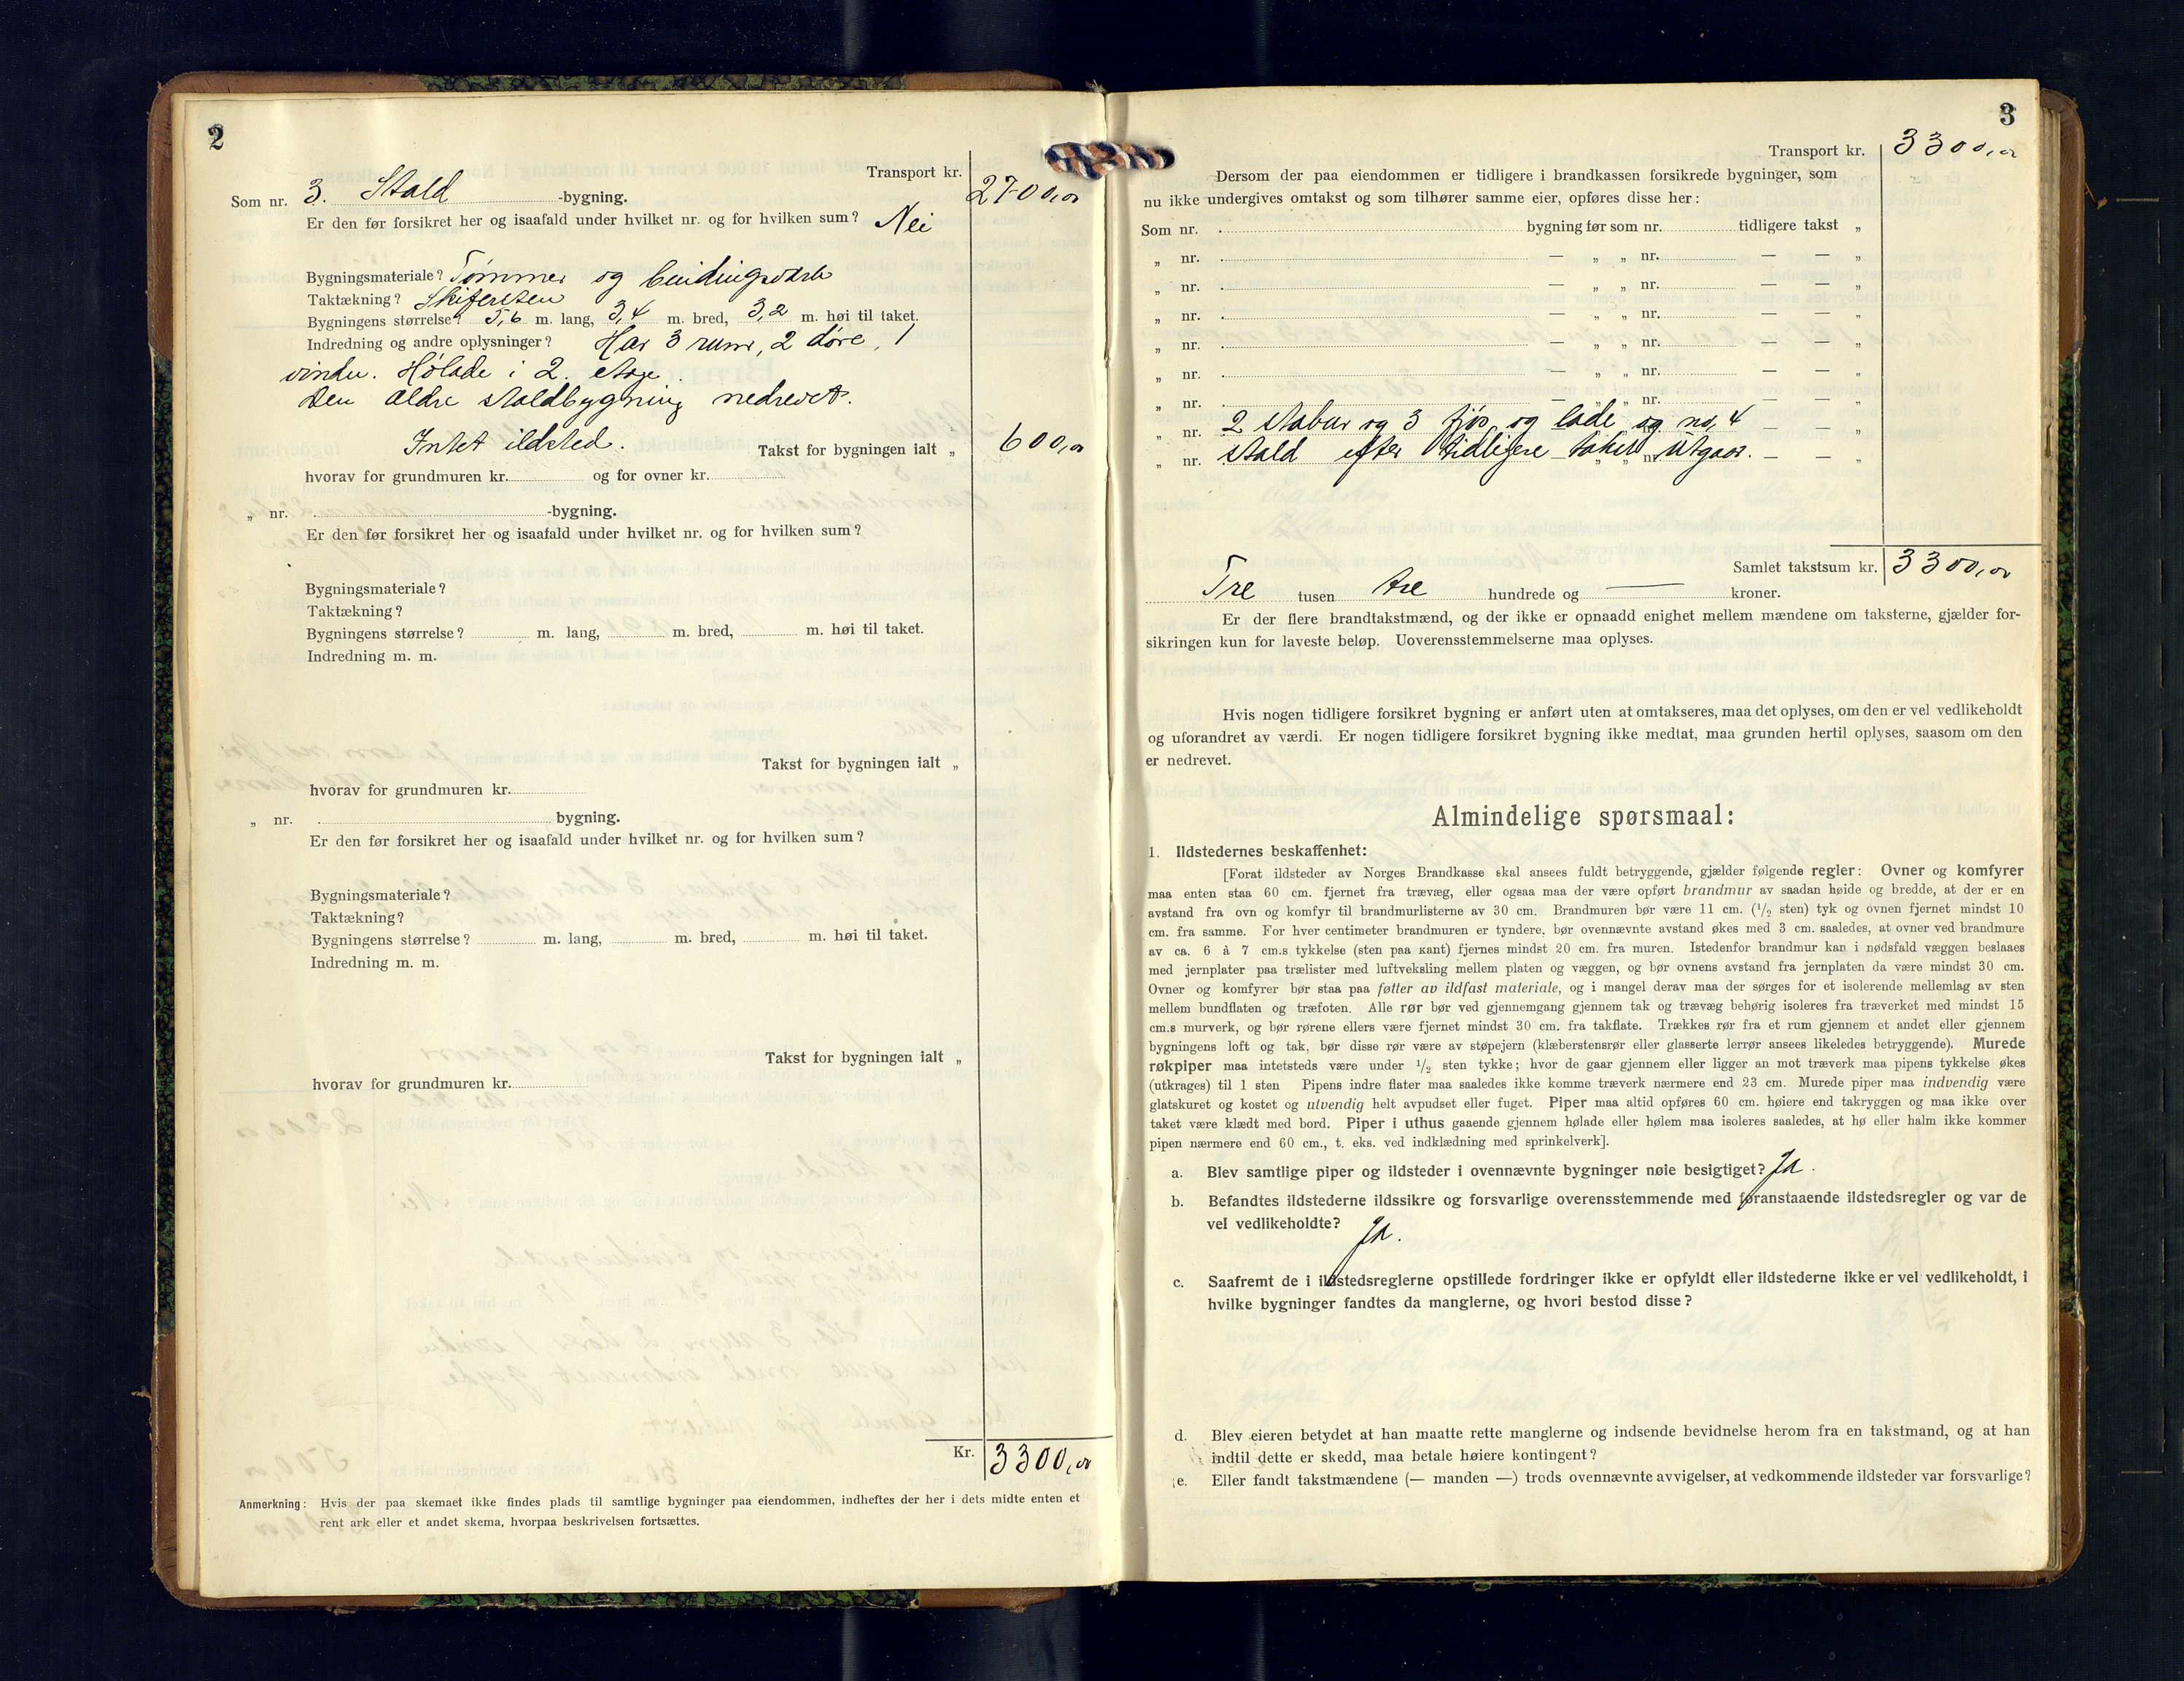 2
Transport kr. 2700,00
Som nr. 3. Stald -bygning.
Er den før forsikret her og isaafald under hvilket nr. og for hvilken sum? Nei
Bygningsmateriale? Tømmer og bindingsverk
Taktækning? Skifersten
Bygningens størrelse? 5,6 m. lang, 3,4 m. bred, 3,2 m. høi til taket.
Indredning og andre oplysninger? Har 3 rum, 2 døre, 1
vindu. Hølade i 2. etage.
Den ældre staldbygning nedrevet.
Intet ildsted. Takst for bygningen ialt „ 600,00
hvorav for grundmuren kr. og for ovner kr.
„ nr. -bygning.
Er den før forsikret her og isaafald under hvilket nr. og for hvilken sum?
Bygningsmateriale?
Taktækning?
Bygningens størrelse? m. lang, m. bred, m. høi til taket.
Indredning m. m.
Takst for bygningen ialt „
hvorav for grundmuren kr.
„ nr. bygning.
Er den før forsikret her og isaafald under hvilket nr. og for hvilken sum?
Bygningsmateriale?
Taktækning?
Bygningens størrelse? m. lang, m. bred, m. høi til taket.
Indredning m. m.
Takst for bygningen ialt „
hvorav for grundmuren kr.
Kr. 3300,00
Anmerkning: Hvis der paa skemaet ikke findes plads til samtlige bygninger paa eiendommen, indheftes der her i dets midte enten et
rent ark eller et andet skema, hvorpaa beskrivelsen fortsættes.
3
Transport kr. 3300,00
Dersom der paa eiendommen er tidligere i brandkassen forsikrede bygninger, som
nu ikke undergives omtakst og som tilhører samme eier, opføres disse her:
Som nr. bygning før som nr. tidligere takst „
„ nr. — „ „ nr. — — „
„ nr. — „ „ nr. — — „
„ nr. — „ „ nr. — — „
„ nr. — „ „ nr. — — „
„ nr. — „ „ nr. — — „
„ nr. — „ „ nr. — — „
„ nr. 2 stabur og 3 fjøs og lade og no, 4 — — „
„ nr. stald efter tidligere takst utgaar. — — „
Samlet takstsum kr. 3300,00
Tre tusen tre hundrede og — kroner.
Er der flere brandtakstmænd, og der ikke er opnaadd enighet mellem mændene om taksterne, gjælder for-
sikringen kun for laveste beløp. Uoverensstemmelserne maa oplyses.
Hvis nogen tidligere forsikret bygning er anført uten at omtakseres, maa det oplyses, om den er vel vedlikeholdt
og uforandret av værdi. Er nogen tidligere forsikret bygning ikke medtat, maa grunden hertil oplyses, saasom om den
er nedrevet.
Almindelige spørsmaal:
1. Ildstedernes beskaffenhet:
[Forat ildsteder av Norges Brandkasse skal ansees fuldt betryggende, gjælder følgende regler: Ovner og komfyrer
maa enten staa 60 cm. fjernet fra trævæg, eller ogsaa maa der være opført brandmur av saadan høide og bredde, at der er en
avstand fra ovn og komfyr til brandmurlisterne av 30 cm. Brandmuren bør være 11 cm. (1/2 sten) tyk og ovnen fjernet mindst 10
cm. fra samme. For hver centimeter brandmuren er tyndere, bør ovennævnte avstand økes med 3 cm. saaledes, at ovner ved brandmure
av ca. 6 à 7 cm.s tykkelse (sten paa kant) fjernes mindst 20 cm. fra muren. Istedenfor brandmur kan i nødsfald væggen beslaaes
med jernplater paa trælister med luftveksling mellem platen og væggen, og bør ovnens avstand fra jernplaten da være mindst 30 cm.
Ovner og komfyrer bør staa paa føtter av ildfast materiale, og i mangel derav maa der sørges for et isolerende mellemlag av sten
mellem bundflaten og træfoten. Alle rør bør ved gjennemgang gjennem tak og trævæg behørig isoleres fra træverket med mindst 15
cm.s murverk, og bør rørene ellers være fjernet mindst 30 cm. fra takflate. Trækkes rør fra et rum gjennem et andet eller gjennem
bygningens loft og tak, bør disse rør være av støpejern (klæberstensrør eller glasserte lerrør ansees likeledes betryggende). Murede
røkpiper maa intetsteds være under 1/2 sten tykke; hvor de gaar gjennem eller ligger an mot træverk maa pipens tykkelse økes
(utkrages) til 1 sten Pipens indre flater maa saaledes ikke komme træverk nærmere end 23 cm. Murede piper maa indvendig være
glatskuret og kostet og utvendig helt avpudset eller fuget. Piper maa altid opføres 60 cm. høiere end takryggen og maa ikke over
taket være klædt med bord. Piper i uthus gaaende gjennem hølade eller hølem maa isoleres saaledes, at hø eller halm ikke kommer
pipen nærmere end 60 cm., t. eks. ved indklædning med sprinkelverk].
a. Blev samtlige piper og ildsteder i ovennævnte bygninger nøie besigtiget? Ja.
b. Befandtes ildstederne ildssikre og forsvarlige overensstemmende med foranstaaende ildstedsregler og var de
vel vedlikeholdte? Ja.
c. Saafremt de i ildstedsreglerne opstillede fordringer ikke er opfyldt eller ildstederne ikke er vel vedlikeholdt, i
hvilke bygninger fandtes da manglerne, og hvori bestod disse?
d. Blev eieren betydet at han maatte rette manglerne og indsende bevidnelse herom fra en takstmand, og at han
indtil dette er skedd, maa betale høiere kontingent?
e. Eller fandt takstmændene (— manden —) trods ovennævnte avvigelser, at vedkommende ildsteder var forsvarlige?